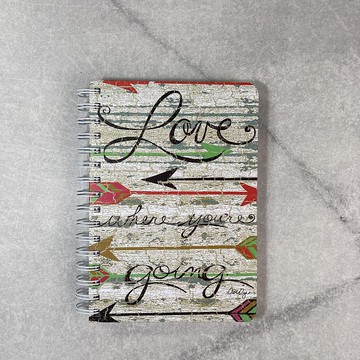 Love
where you're
going